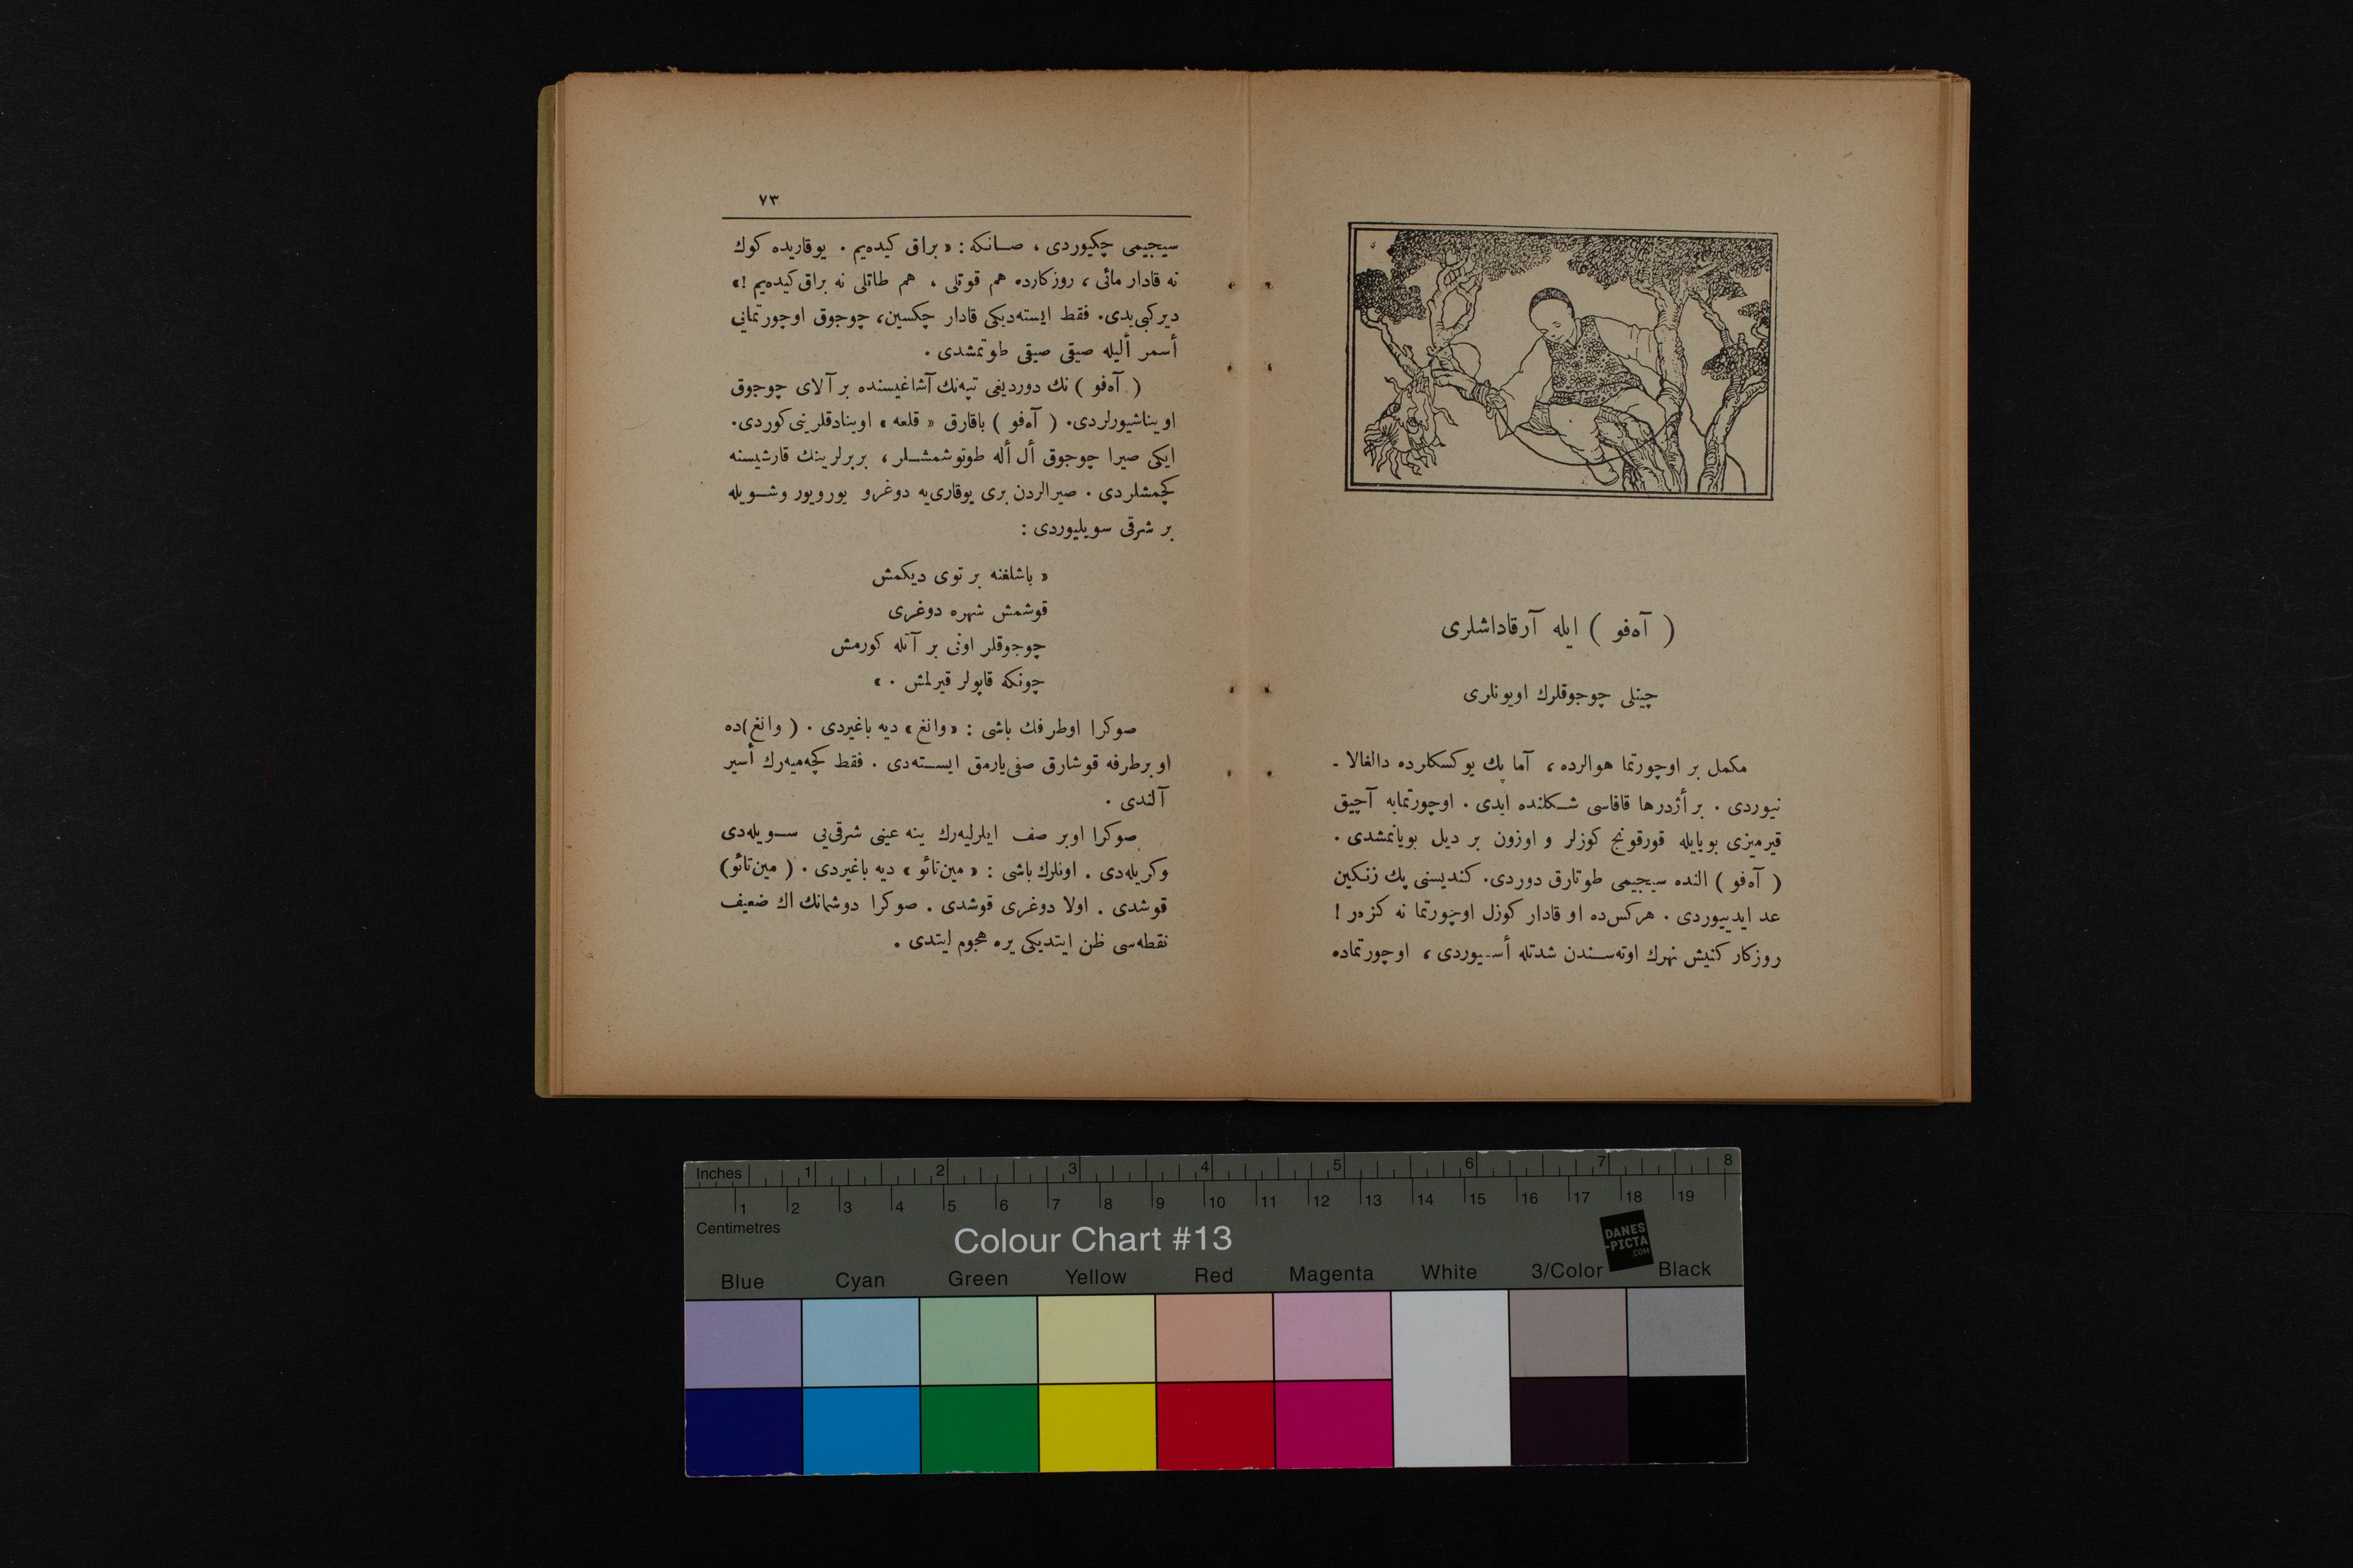 ( آه‌فو ) ایله آرقاداشلری
چینلی چوجوقلرك اویونلری
مكمل بر اوچورتما هوالرده ، آما پك یوكسكلرده دالغالا ـ
نیوردی . بر أژدرها قافاسی شكلنده ایدی . اوچورتمایه آچیق
قیرمیزی بویایله قورقونج كوزلر و اوزون بر دیل بویانمشدی .
( آه‌فو ) النده سیجیمی طوتارق دوردی. كندیسنی پك زنكین
عد ایدییوردی . هركس‌ده او قادار كوزل اوچورتما نه كزه‌ر !
روزكار كنیش نهرك اوته‌سندن شدتله أسیوردی ، اوچورتماده
٧٣
سیجیمی چكیوردی ، صانكه : « براق كیده‌یم . یوقاریده كوك
نه قادار مائی ، روزكارده هم قوتلی ، هم طاتلی نه براق كیده‌یم !»
دیركبی‌یدی. فقط ایسته‌دیكی قادار چكسین، چوجوق اوچورتمانی
أسمر ألیله صیقی صیقی طوتمشدی .
( آه‌فو ) نك دوردیغی تپه‌نك آشاغیسنده بر آلای چوجوق
اویناشیورلردی. ( آه‌فو ) باقارق « قلعه » اوینادقلرینی كوردی.
ایكی صیرا چوجوق أل أله طوتوشمشلر ، بربرلرینك قارشیسنه
كچمشلردی . صیرالردن بری یوقاری‌یه دوغرو یورویور وشویله
بر شرقی سویلیوردی :
« باشلغنه بر توی دیكمش
قوشمش شهره دوغری
چوجوقلر اونی بر آتله كورمش
چونكه قاپولر قیرلمش . »
صوكرا اوطرفك باشی : «وانغ» دیه باغیردی . ( وانغ)ده
او برطرفه قوشارق صفی یارمق ایسته‌دی . فقط كچه‌میه‌رك أسیر
آلندی .
صوكرا اوبر صف ایلرلیه‌رك ینه عینی شرقی‌یی سویله‌دی
وكریله‌دی . اونلرك باشی : « مین‌تائو » دیه باغیردی . ( مین‌تائو)
قوشدی . اولا دوغری قوشدی . صوكرا دوشمانك اك ضعیف
نقطه‌سی ظن ایتدیكی یره هجوم ایتدی .
Inches 1 2 3 4 5 6 7 8
1 2 3 4 5 6 7 8 9 10 11 12 13 14 15 16 17 18 19
Centimetres
Colour Chart #13
DANES
-PICTA
.COM
Blue Cyan Green Yellow Red Magenta White 3/Color Black